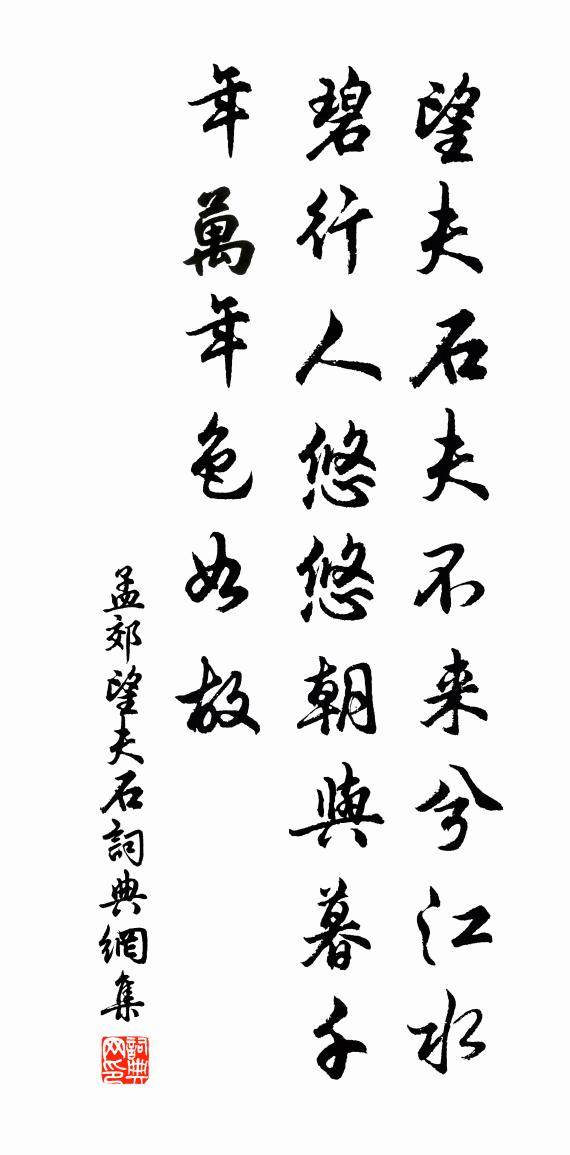 望夫石夫不来兮江水
碧行人悠悠朝與暮千
年萬年色如故
孟郊望夫石詞典網集
詞典网印